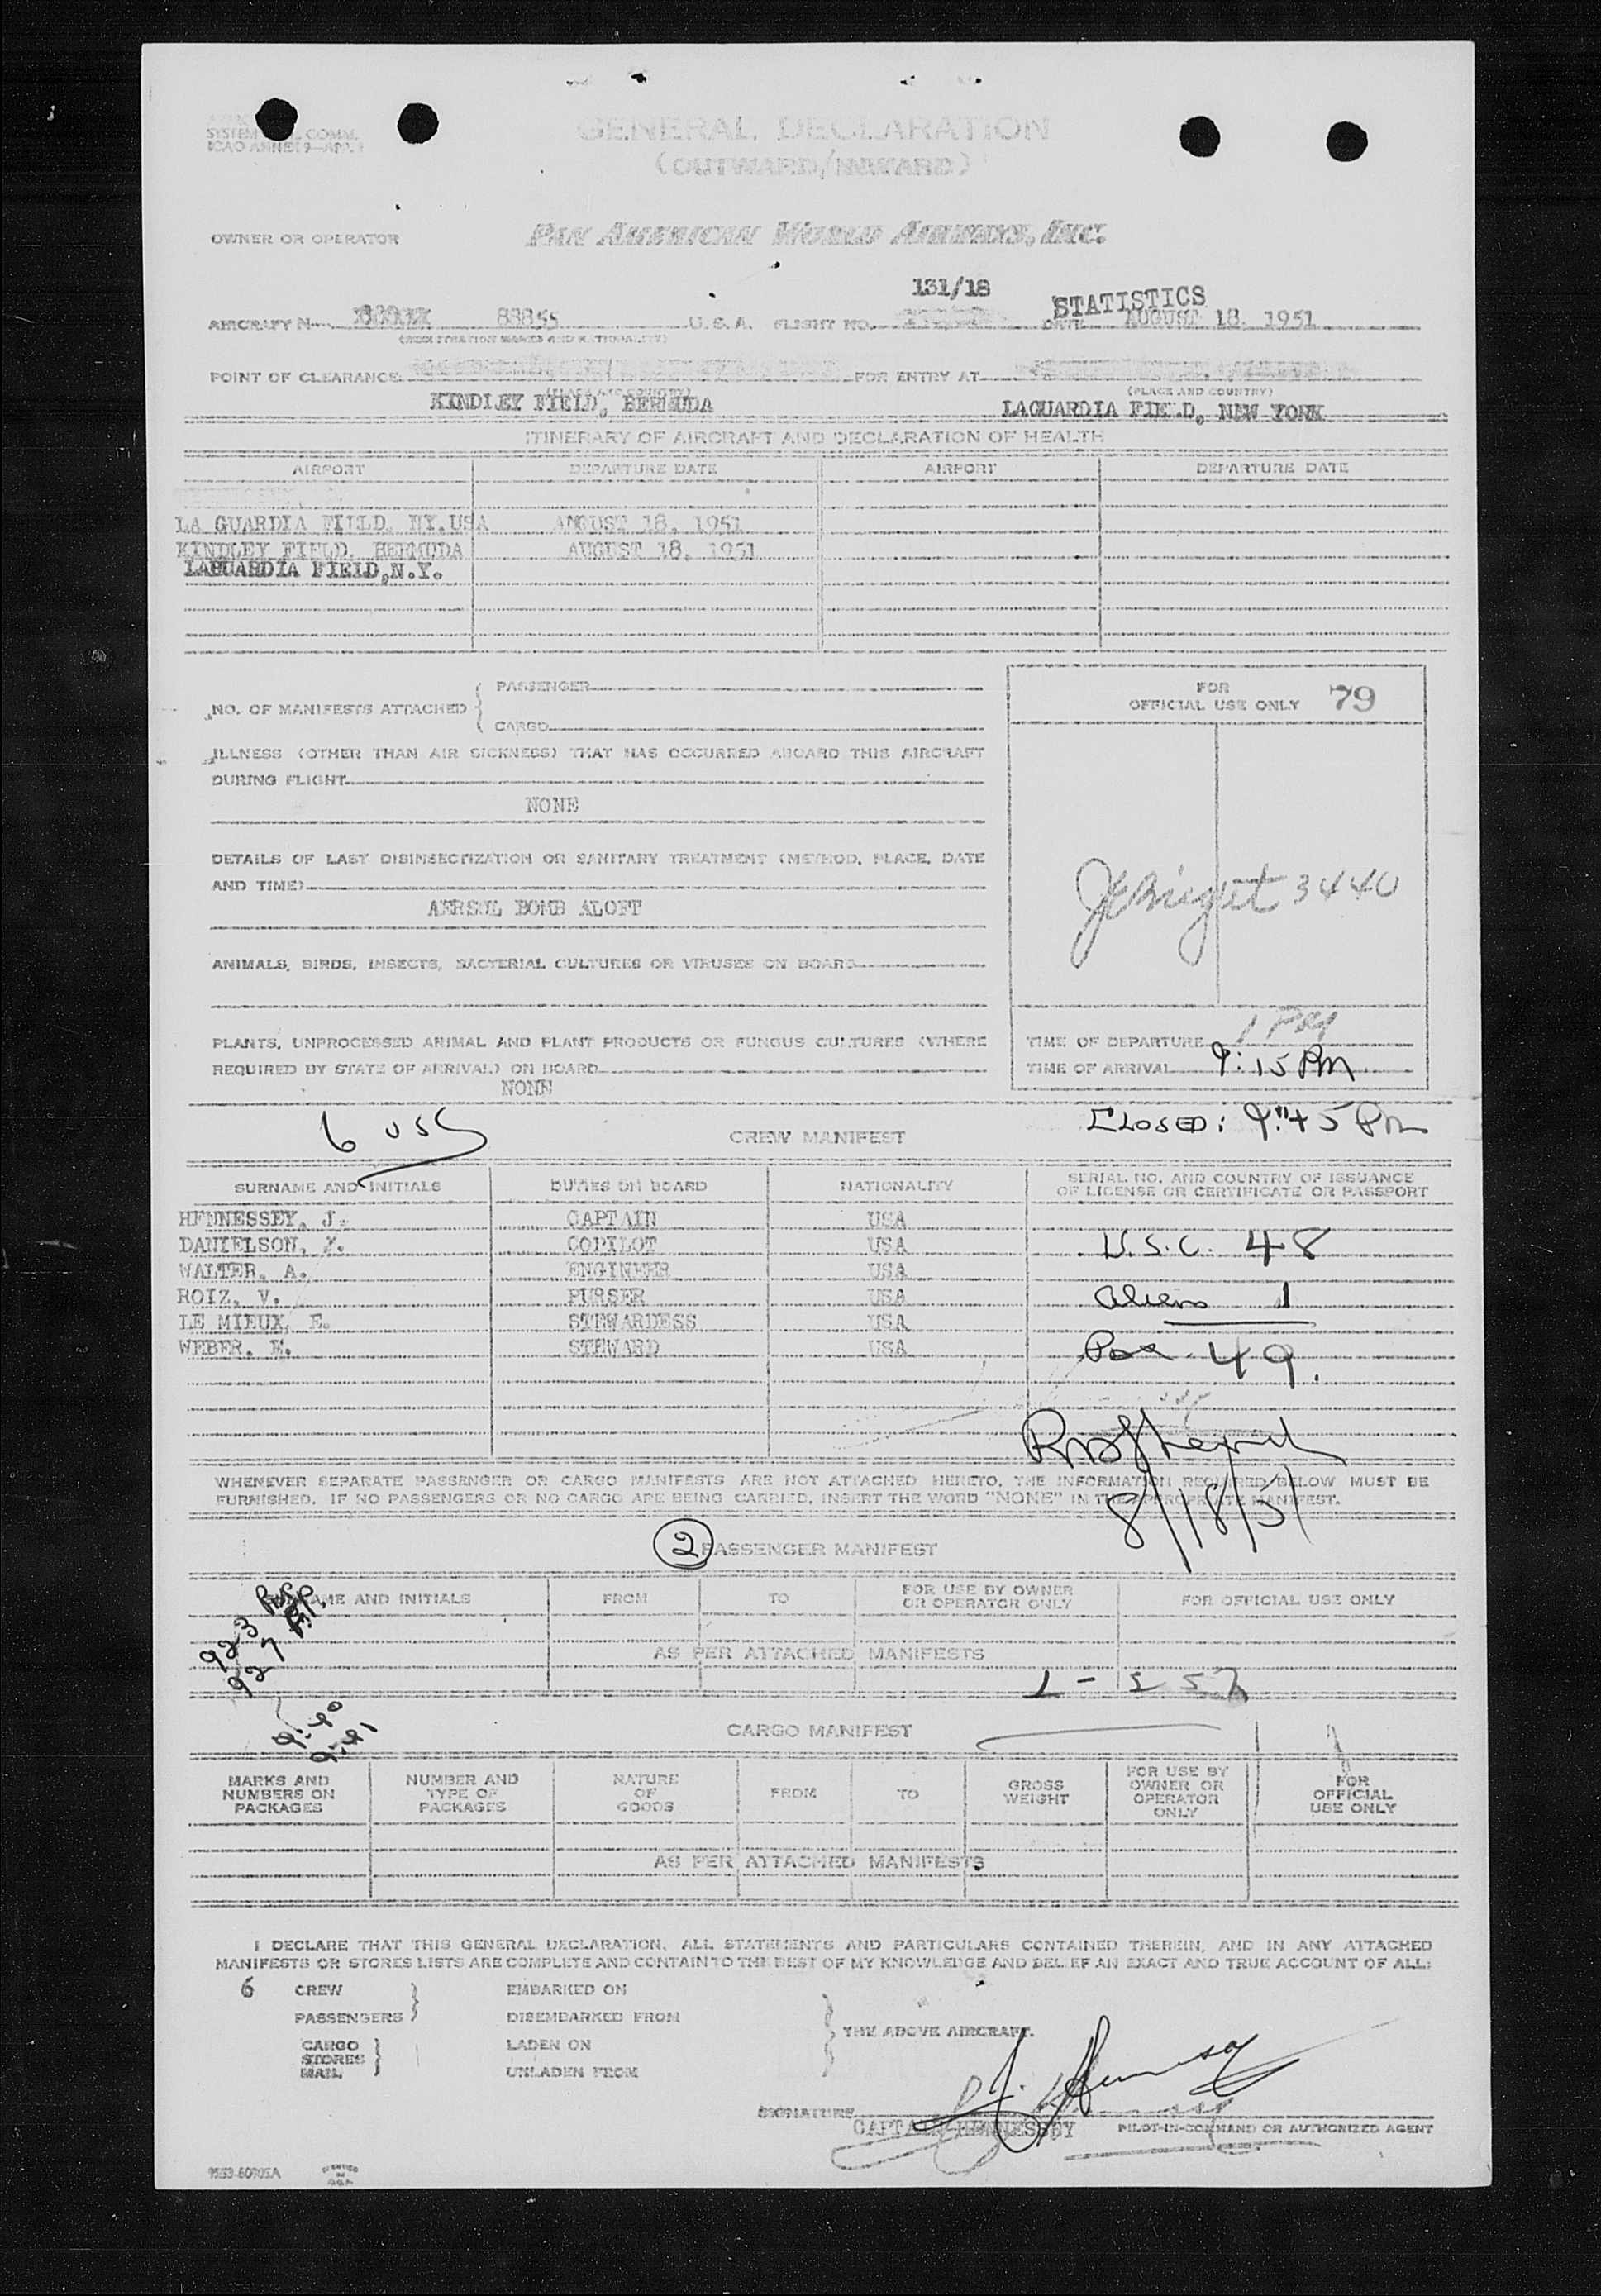 SYSTEM COMM.
ICAO ANNEX 9—APP.
GENERAL DECLARATION
(OUTWARD/INWARD)
OWNER OR OPERATOR PAN AMERICAN WORLD AIRWAYS, INC.
131/18
STATISTICS
AIRCRAFT N 88855 U. S. A. FLIGHT NO. DATE AUGUST 18, 1951
(REGISTRATION MARKS AND NATIONALITY)
POINT OF CLEARANCE FOR ENTRY AT
(PLACE AND COUNTRY) (PLACE AND COUNTRY)
KINDLEY FIELD, BERMUDA LAGUARDIA FIELD, NEW YORK
ITINERARY OF AIRCRAFT AND DECLARATION OF HEALTH
AIRPORT DEPARTURE DATE AIRPORT DEPARTURE DATE
LA GUARDIA FIELD, NY.USA AUGUST 18, 1951
KINDLEY FIELD, BERMUDA AUGUST 18, 1951
LAGUARDIA FIELD,N.Y.
NO. OF MANIFESTS ATTACHED { PASSENGER
CARGO
FOR
OFFICIAL USE ONLY 79
ILLNESS (OTHER THAN AIR SICKNESS) THAT HAS OCCURRED ABOARD THIS AIRCRAFT
DURING FLIGHT
NONE
DETAILS OF LAST DISINSECTIZATION OR SANITARY TREATMENT (METHOD, PLACE, DATE
AND TIME)
AERSOL BOMB ALOFT
3440
ANIMALS, BIRDS, INSECTS, BACTERIAL CULTURES OR VIRUSES ON BOARD
PLANTS, UNPROCESSED ANIMAL AND PLANT PRODUCTS OR FUNGUS CULTURES (WHERE
REQUIRED BY STATE OF ARRIVAL) ON BOARD
NONE
TIME OF DEPARTURE 1 PM
TIME OF ARRIVAL 9:15 PM
CLOSED: 9:45 PM
6 USC
CREW MANIFEST
SURNAME AND INITIALS DUTIES ON BOARD NATIONALITY SERIAL NO. AND COUNTRY OF ISSUANCE
OF LICENSE OR CERTIFICATE OR PASSPORT
HENNESSEY, J. CAPTAIN USA
DANIELSON, COPILOT USA U.S.C. 48
WALTER, A. ENGINEER USA
ROIZ, V. PURSER USA Aliens 1
LE MIEUX, E. STEWARDESS USA
WEBER, E. STEWARD USA Pax 49.
8/18/51
WHENEVER SEPARATE PASSENGER OR CARGO MANIFESTS ARE NOT ATTACHED HERETO, THE INFORMATION REQUIRED BELOW MUST BE
FURNISHED. IF NO PASSENGERS OR NO CARGO ARE BEING CARRIED, INSERT THE WORD "NONE" IN THE APPROPRIATE MANIFEST.
2 PASSENGER MANIFEST
SURNAME AND INITIALS FROM TO FOR USE BY OWNER
OR OPERATOR ONLY FOR OFFICIAL USE ONLY
923
927
AS PER ATTACHED MANIFESTS
CARGO MANIFEST
MARKS AND
NUMBERS ON
PACKAGES NUMBER AND
TYPE OF
PACKAGES NATURE
OF
GOODS FROM TO GROSS
WEIGHT FOR USE BY
OWNER OR
OPERATOR
ONLY FOR
OFFICIAL
USE ONLY
AS PER ATTACHED MANIFESTS
I DECLARE THAT THIS GENERAL DECLARATION, ALL STATEMENTS AND PARTICULARS CONTAINED THEREIN, AND IN ANY ATTACHED
MANIFESTS OR STORES LISTS ARE COMPLETE AND CONTAIN TO THE BEST OF MY KNOWLEDGE AND BELIEF AN EXACT AND TRUE ACCOUNT OF ALL:
6 CREW EMBARKED ON
PASSENGERS DISEMBARKED FROM
THE ABOVE AIRCRAFT.
CARGO LADEN ON
STORES
MAIL UNLADEN FROM
J. Hennessey
SIGNATURE
CAPTAIN HENNESSEY PILOT-IN-COMMAND OR AUTHORIZED AGENT
PRINTED
IN
U.S.A.